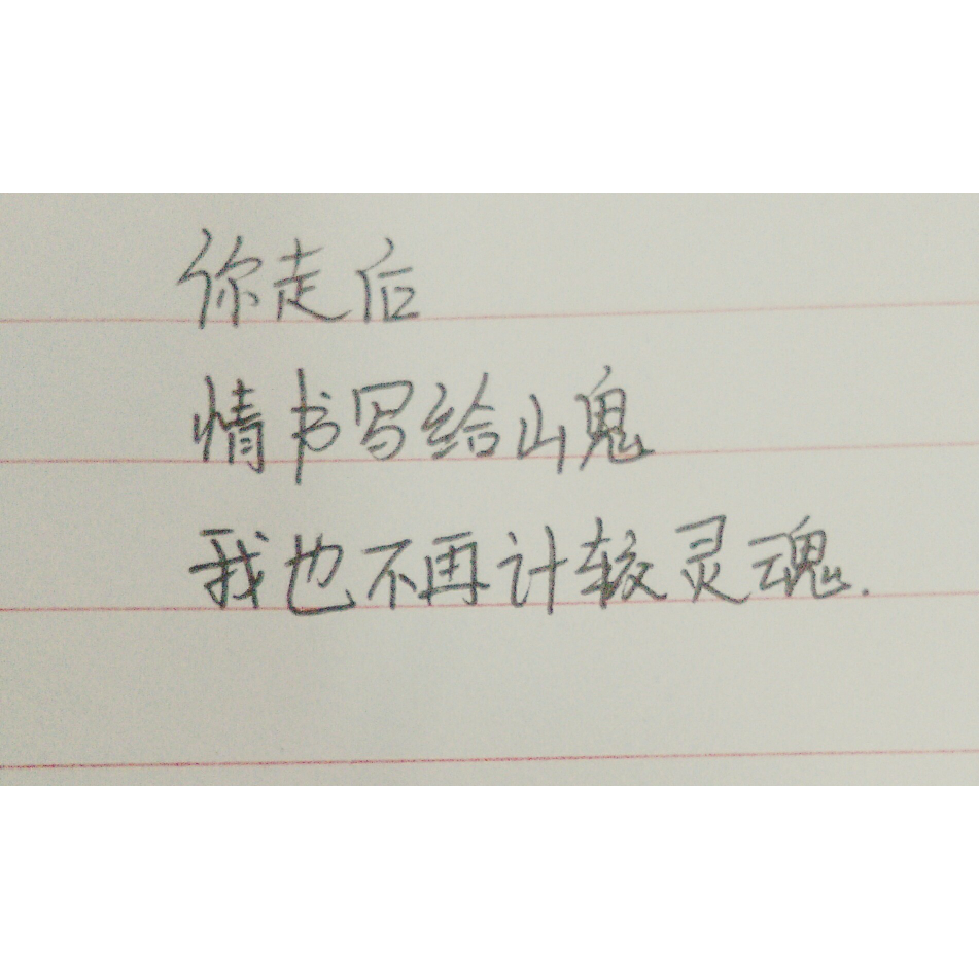 你走后
情书写给山鬼
我也不再计较灵魂.